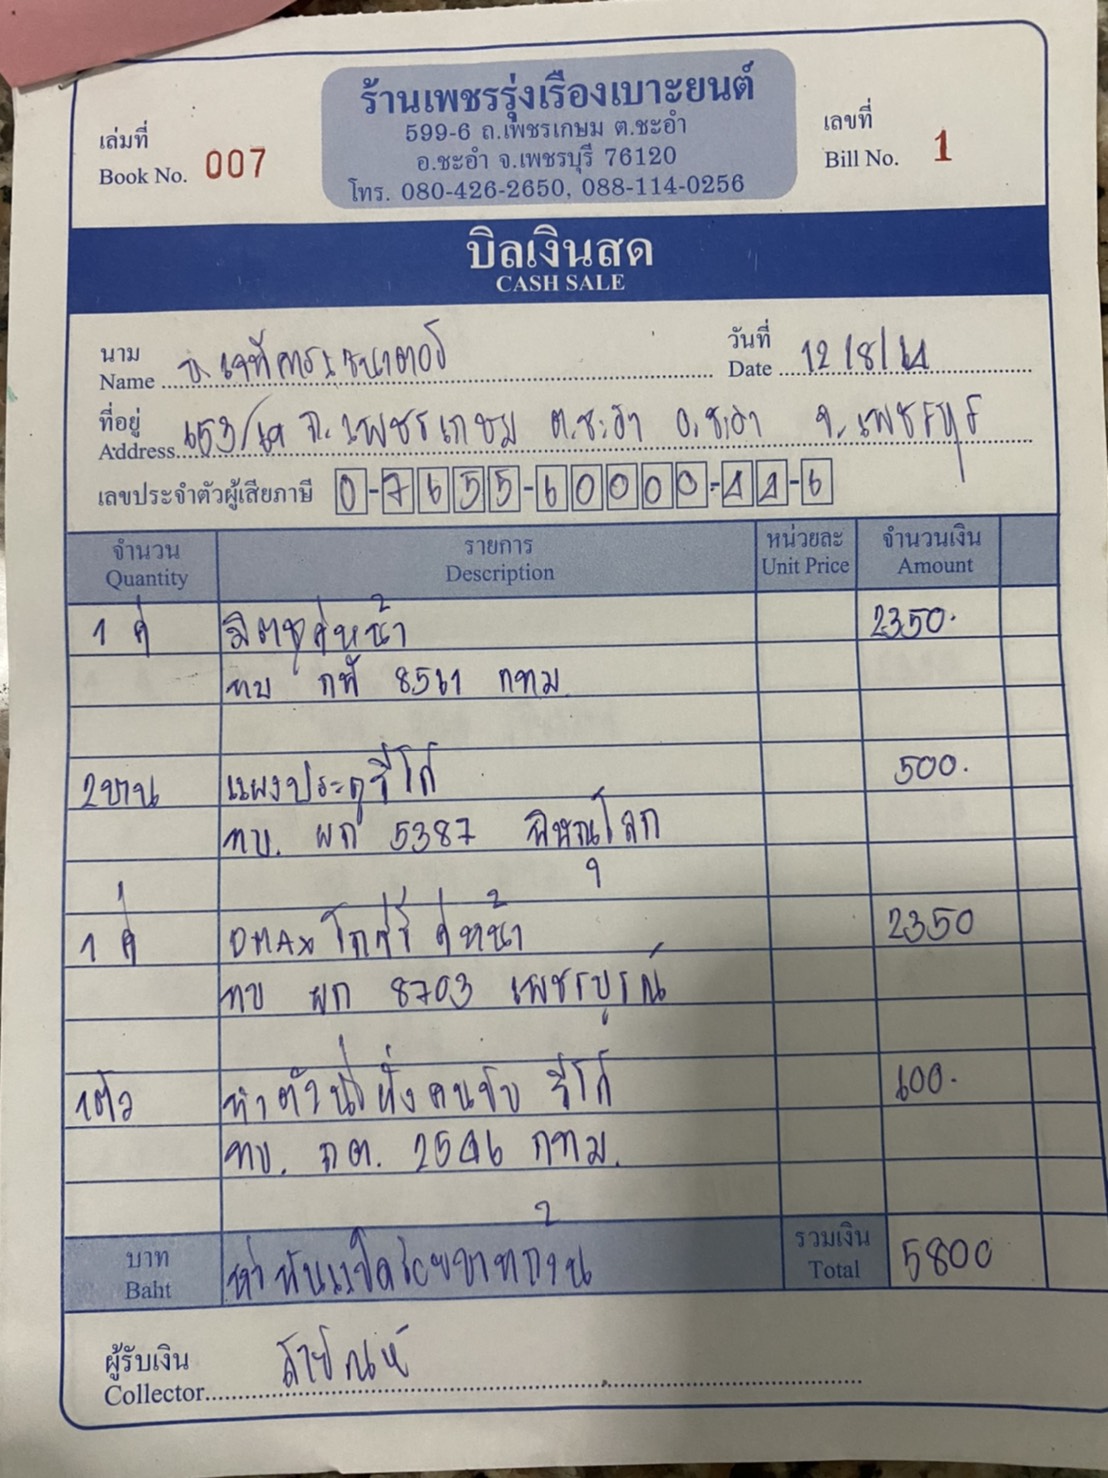 ร้านเพชรรุ่งเรืองเบาะยนต์
599-6 ถ.เพชรเกษม ต.ชะอำ
อ.ชะอำ จ.เพชรบุรี 76120
โทร. 080-426-2650, 088-114-0256
เล่มที่
Book No. 007
เลขที่
Bill No. 1
บิลเงินสด
CASH SALE
นาม
Name
วันที่
Date 12/8/64
ที่อยู่
Address 653/ ถ.เพชรเกษม ต.ชะอำ อ.ชะอำ จ.เพชรบุรี
เลขประจำตัวผู้เสียภาษี 0-7655-60000-11-6
จำนวน รายการ หน่วยละ จำนวนเงิน
Quantity Description Unit Price Amount
1 คู่ มิตซูคู่หน้า 2350.
ทบ 8561 กทม
2บาน แผงประตูรีโว้ 500.
ทบ. ผก 5387 พิษณุโลก
1 คู่ DMAX คู่หน้า 2350
ทบ ผก 8703 เพชรบูรณ์
1ตัว ทำตัวนั่งฝั่งคนขับ รีโว้ 600.
ทบ. 2546 กทม.
บาท ห้าพันแปดร้อยบาทถ้วน รวมเงิน 5800
Baht Total
ผู้รับเงิน
Collector